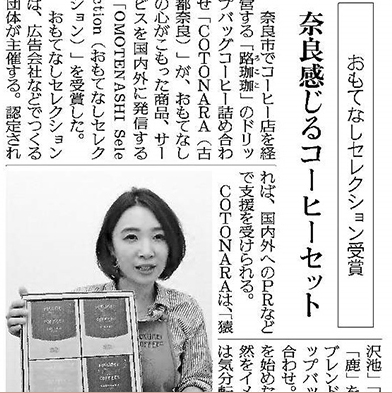 おもてなしセレクション受賞
奈良感じるコーヒーセット
奈良市でコーヒー店を経
営する「路珈珈」のドリッ
プバッグコーヒー詰め合わ
せ「COTONARA（古
都奈良）」が、おもてなし
の心がこもった商品、サー
ビスを国内外に発信する
「OMOTENASHI Sele
ction（おもてなしセレク
ション）」を受賞した。
おもてなしセレクション
は、広告会社などでつくる
団体が主催する。認定され
れば、国内外へのPRなど
で支援を受けられる。
COTONARAは、「猿
沢池」
「鹿」を
ブレンド
ップバッ
合わせ。
を始めた
然をイメ
は気分転